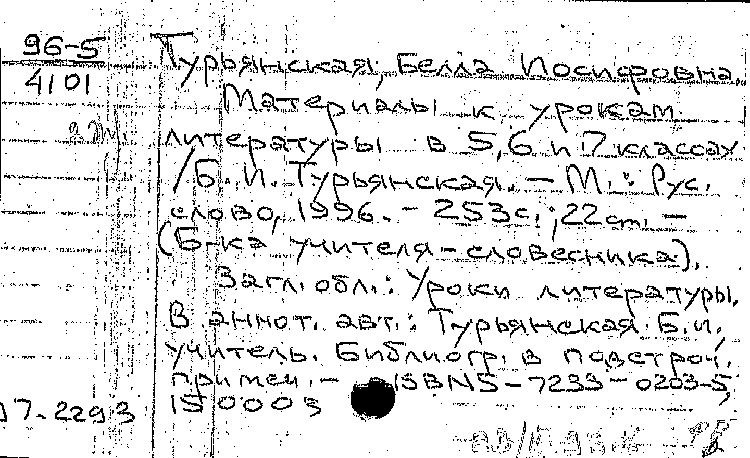 96-5
4101
Турьянская, Белла Иосифовна.
Материалы к урокам
литературы в 5,6 и 7 классах
/Б. И. Турьянская. – М.: Рус.
слово, 1996. – 253с.; 22cm. –
(Б-ка учителя-словесника).
Загл. обл.: Уроки литературы.
В аннот. авт.: Турьянская Б.И.,
учитель. Библиогр. в подстроч.
примеч. – ISBN5-7233-0203-5,
150003
17-2293